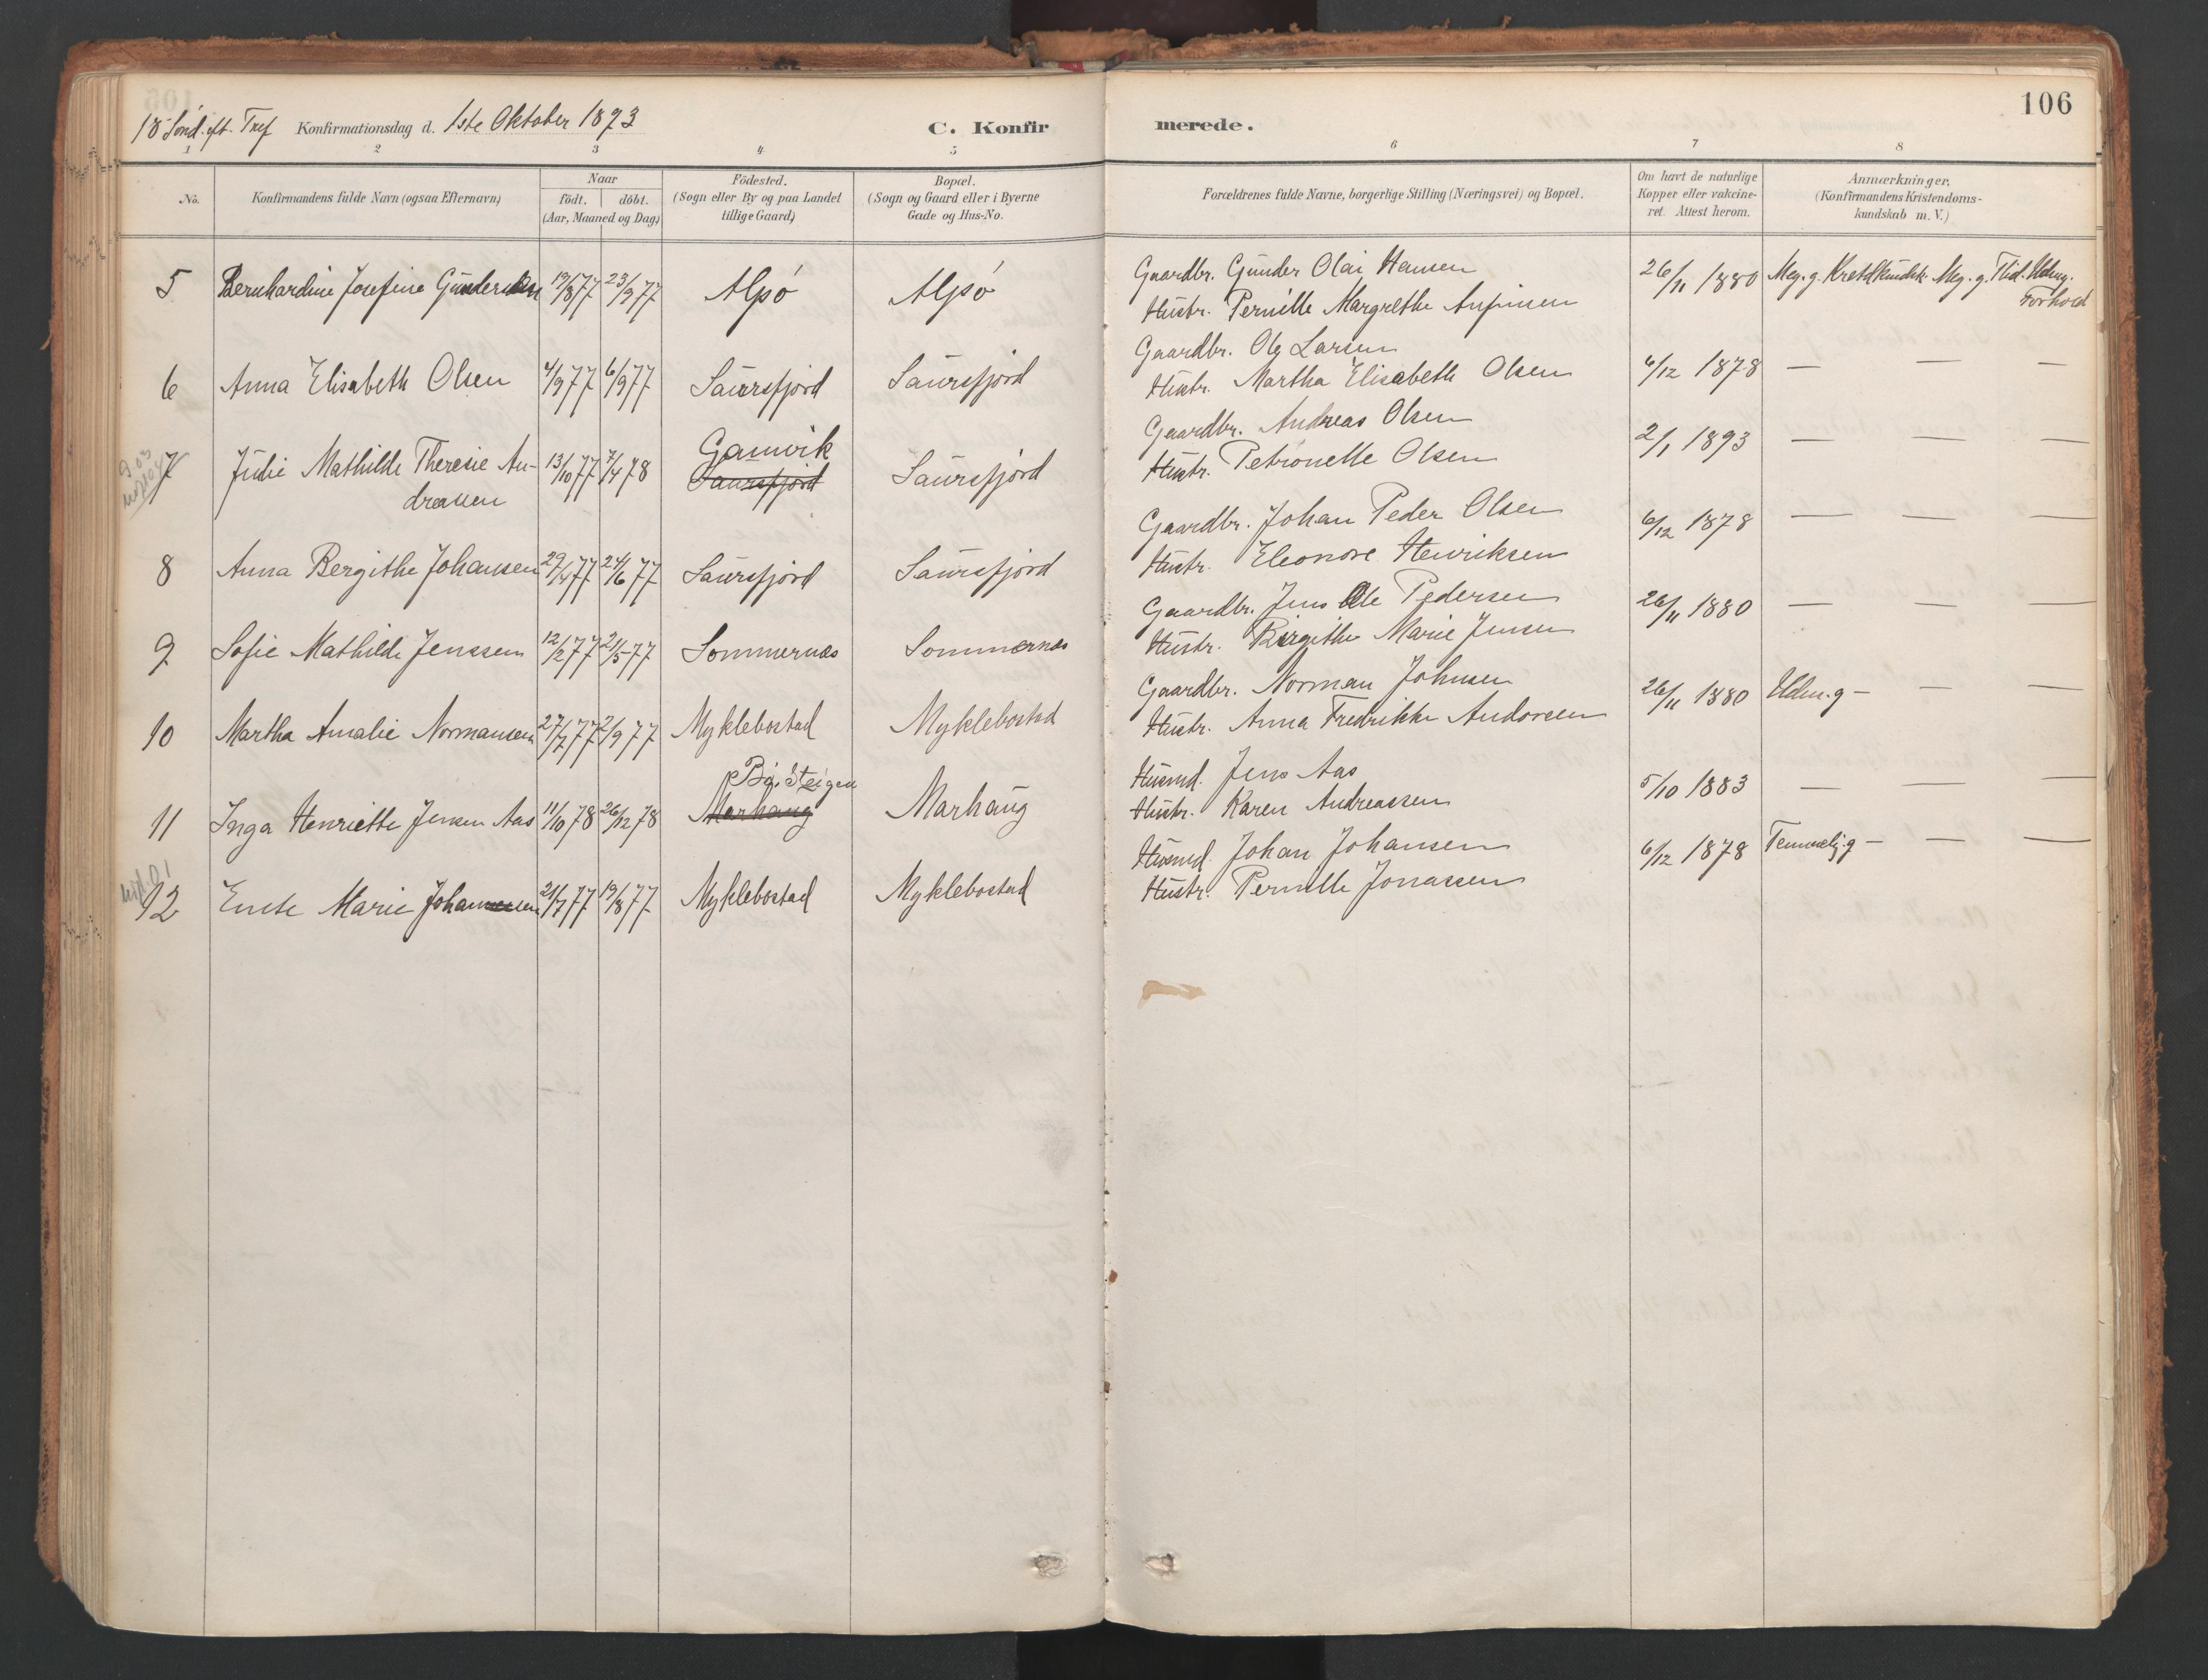 18 Sönd. eft. Tref Konfirmationsdag d. 1ste Oktober 1893
C. Konfir merede. 106
1 2 3 4 5 6 7 8
No. Konfirmandens fulde Navn (ogsaa Efternavn) Naar födt. döbt. (Aar, Maaned og Dag) Födested. (Sogn eller By og paa Landet tillige Gaard) Bopæl. (Sogn og Gaard eller i Byerne Gade og Hus-No. Forældrenes fulde Navne, borgerlige Stilling (Næringsvei) og Bopæl. Om havt de naturlige Kopper eller vakcineret. Attest herom. Anmærkninger, (Konfirmandens Kristendomskundskab m. V.)
Gaardbr. Gunder Olai Hansen
5 Bernhardine Josefine Gundersen 19/8 77 23/9 77 Alpö Alpö 26/11 1880 Meg. g. Kristdkundsk. Meg. g. Flid. Udm. g. Forhold
Hustr. Pernille Margrethe
Gaardbr. Ole Larsen
6 Anna Elisabeth Olsen 4/9 77 6/9 77 Saursfjord Saursfjord 6/12 1878 — — —
Hustr. Martha Elisabeth Olsen
Gaardbr. Andreas Olsen
7 Julie Mathilde Theresie An- 13/10 77 7/4 78 Gamvik Saursfjord 2/1 1893 — — —
dreassen Saursfjord
Hustr. Petronelle Olsen
Gaardbr. Johan Peder Olsen
8 Anna Bergithe Johansen 29/4 77 24/6 77 Saursfjord Saursfjord 6/12 1878 — — —
Hustr. Eleonore Henriksen
Gaardbr. Jens Ole Pedersen
9 Sofie Mathilde Jenssen 12/2 77 21/5 77 Sommernæs Sommernæs 26/11 1880 — — —
Hustr. Birgithe Marie Jensen
Gaardbr. Norman Johnsen
10 Martha Amalie Normansen 27/7 77 2/9 77 Myklebostad Myklebostad 26/11 1880 Udm. g — — —
Hustr. Anna Fredrikke Andorsen
Husmd. Jens Aas
11 Inga Henriette Jensen Aas 11/10 78 26/12 78 Bö, Steigen Marhaug 5/10 1883 — — —
Marhaug
Hustr. Karen Andreassen
Husmd. Johan Johansen
12 Marie Johansen 21/7 77 19/8 77 Myklebostad Myklebostad 6/12 1878 Temmelig. g — — —
Hustr. Pernille Jonassen